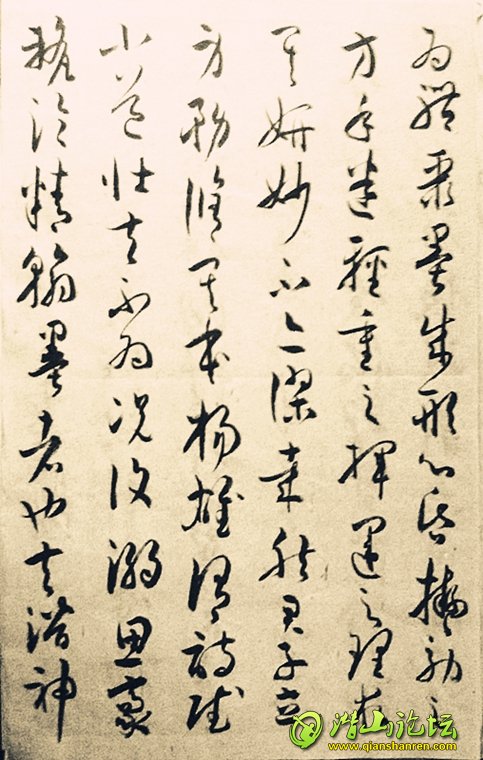 為體聚墨成形心昏擬效之
方手迷輕重之揮運之理求
其妍妙不亦謬哉然君子立
身務脩其本楊雄謂詩賦
小道壯夫不為況復溺思豪
氂淪精翰墨者也夫潛神
潜山论坛
www.qianshanren.com